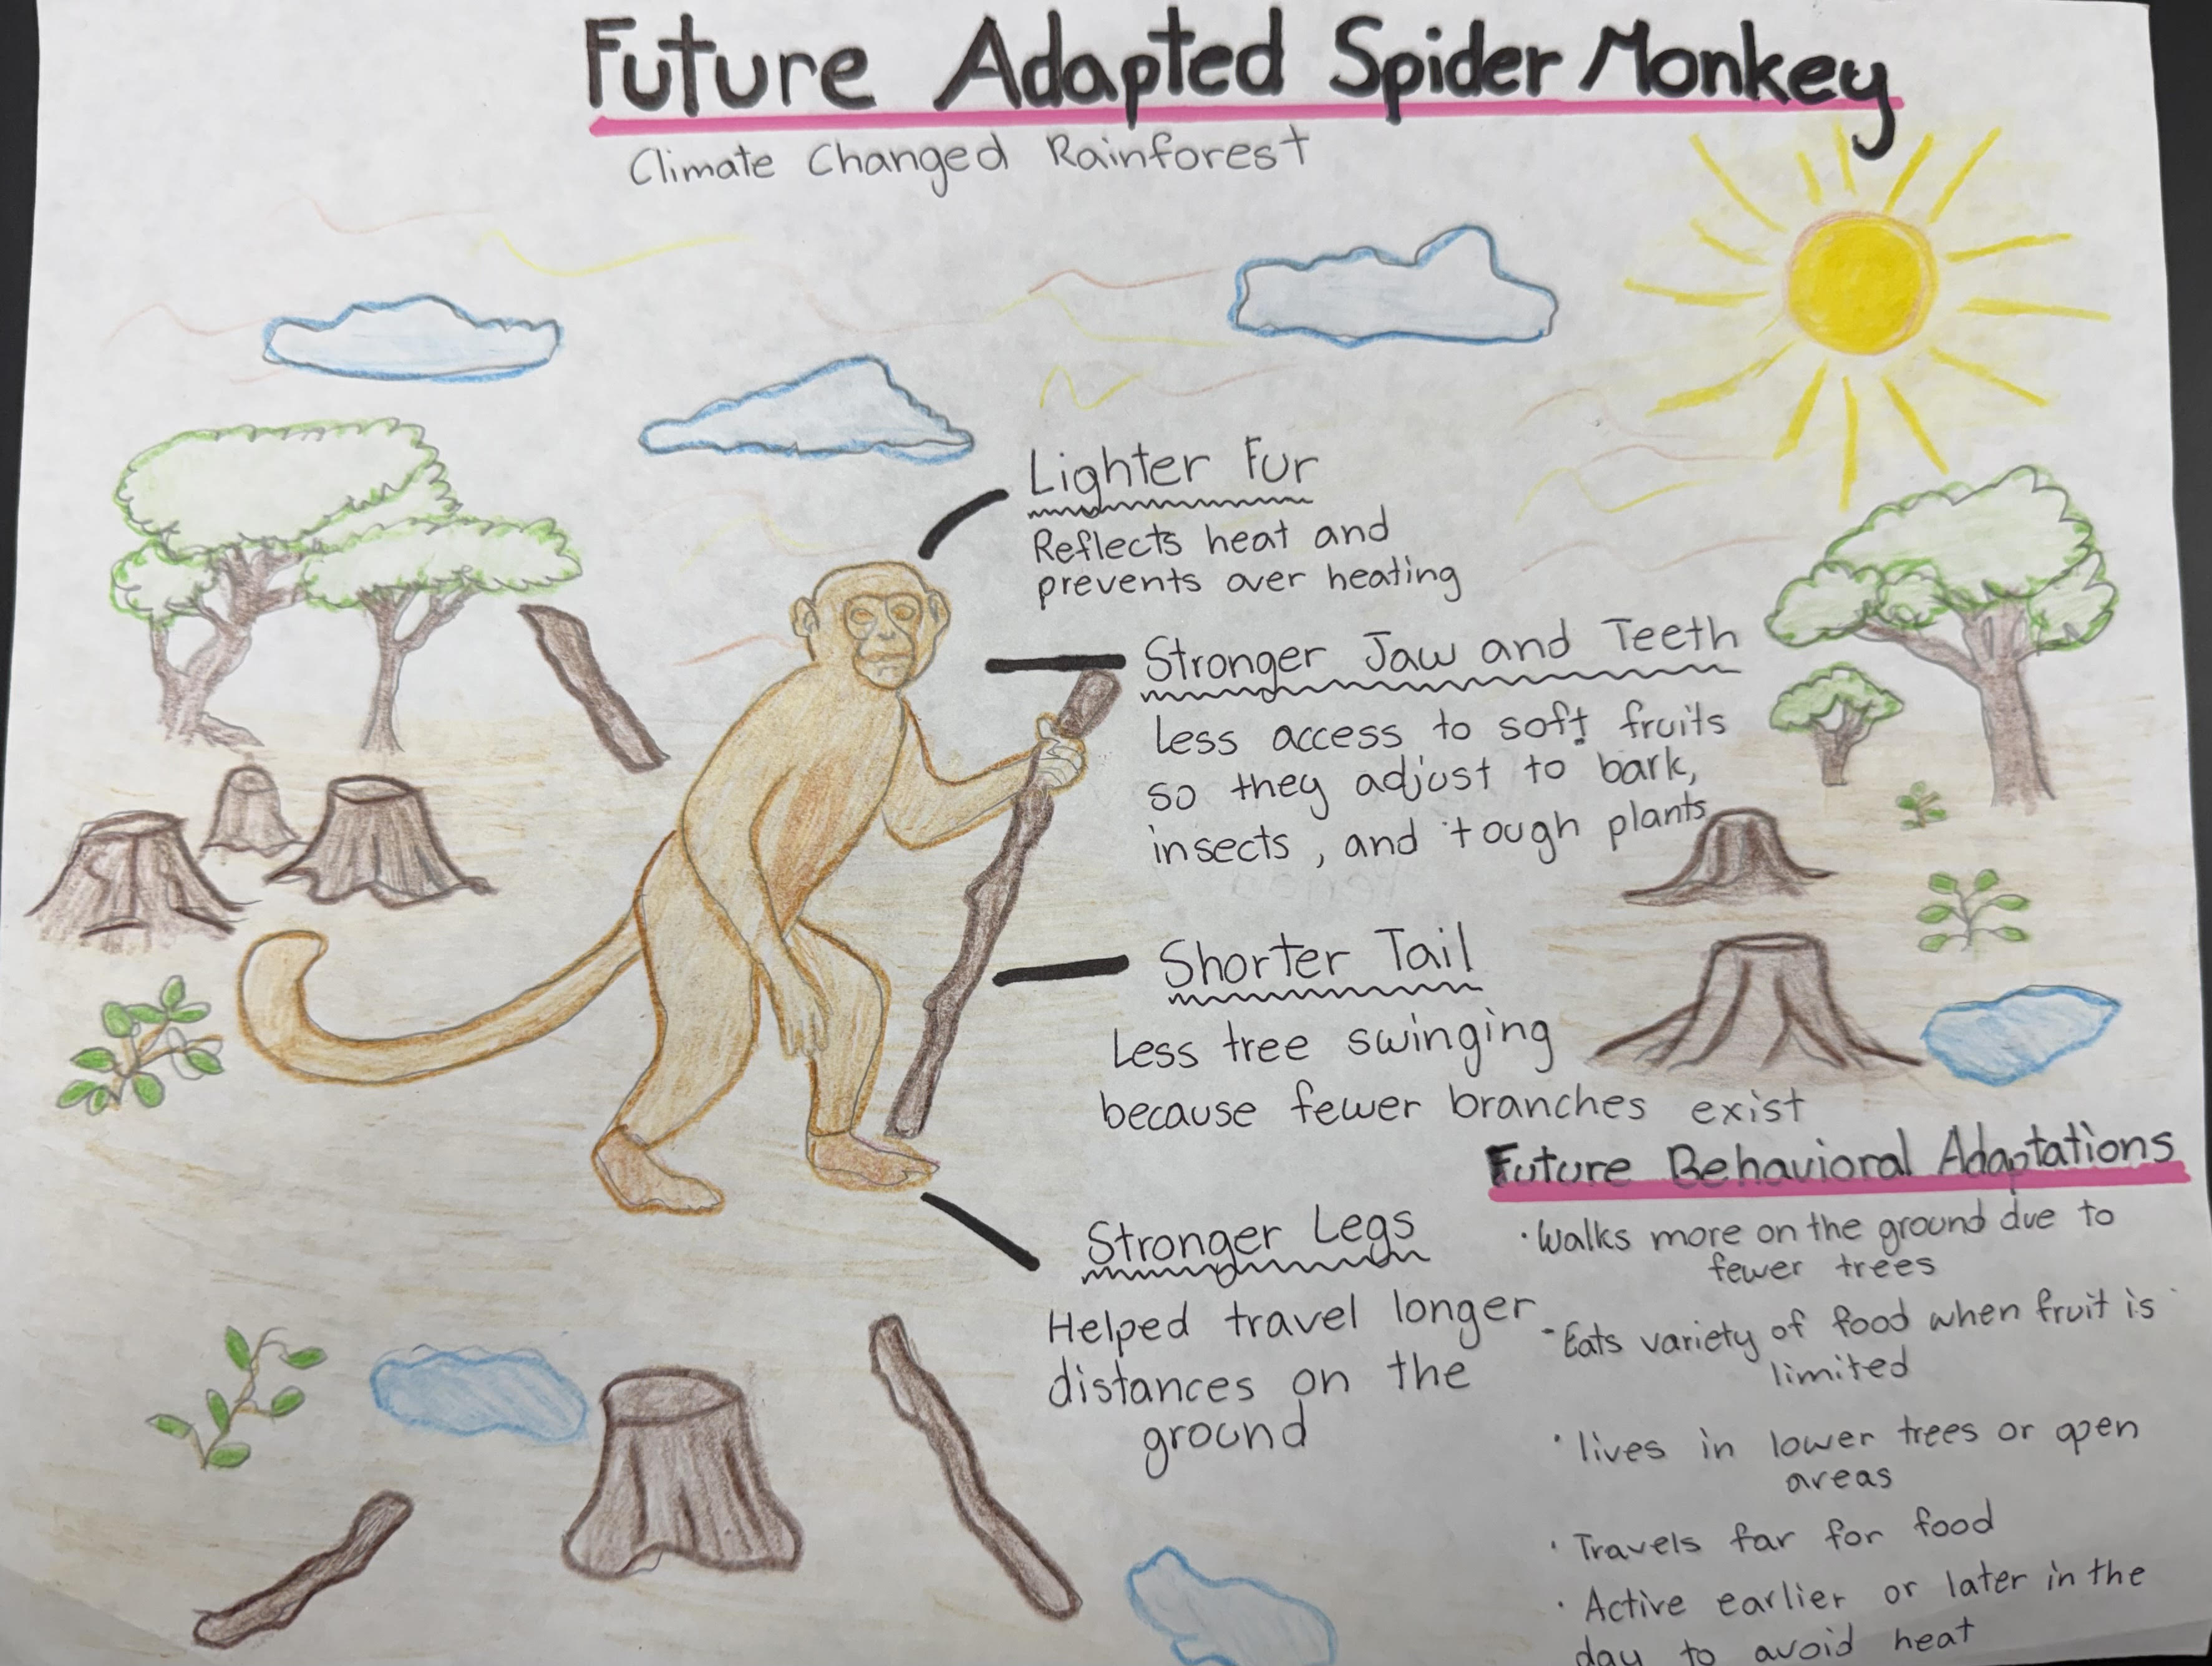 Future Adapted Spider Monkey
Climate Changed Rainforest
Lighter Fur
Reflects heat and
prevents over heating
Stronger Jaw and Teeth
Less access to soft fruits
so they adjust to bark,
insects, and tough plants
Shorter Tail
Less tree swinging
because fewer branches exist
Stronger Legs
Helped travel longer
distances on the
ground
Future Behavioral Adaptations
· Walks more on the ground due to
fewer trees
- Eats variety of food when fruit is
limited
· lives in lower trees or open
areas
· Travels far for food
· Active earlier or later in the
day to avoid heat